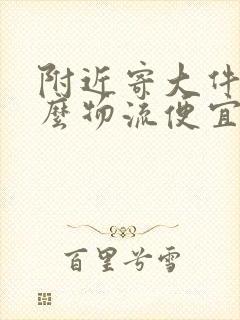 附近寄大件
麼物流便宜
百里兮雪